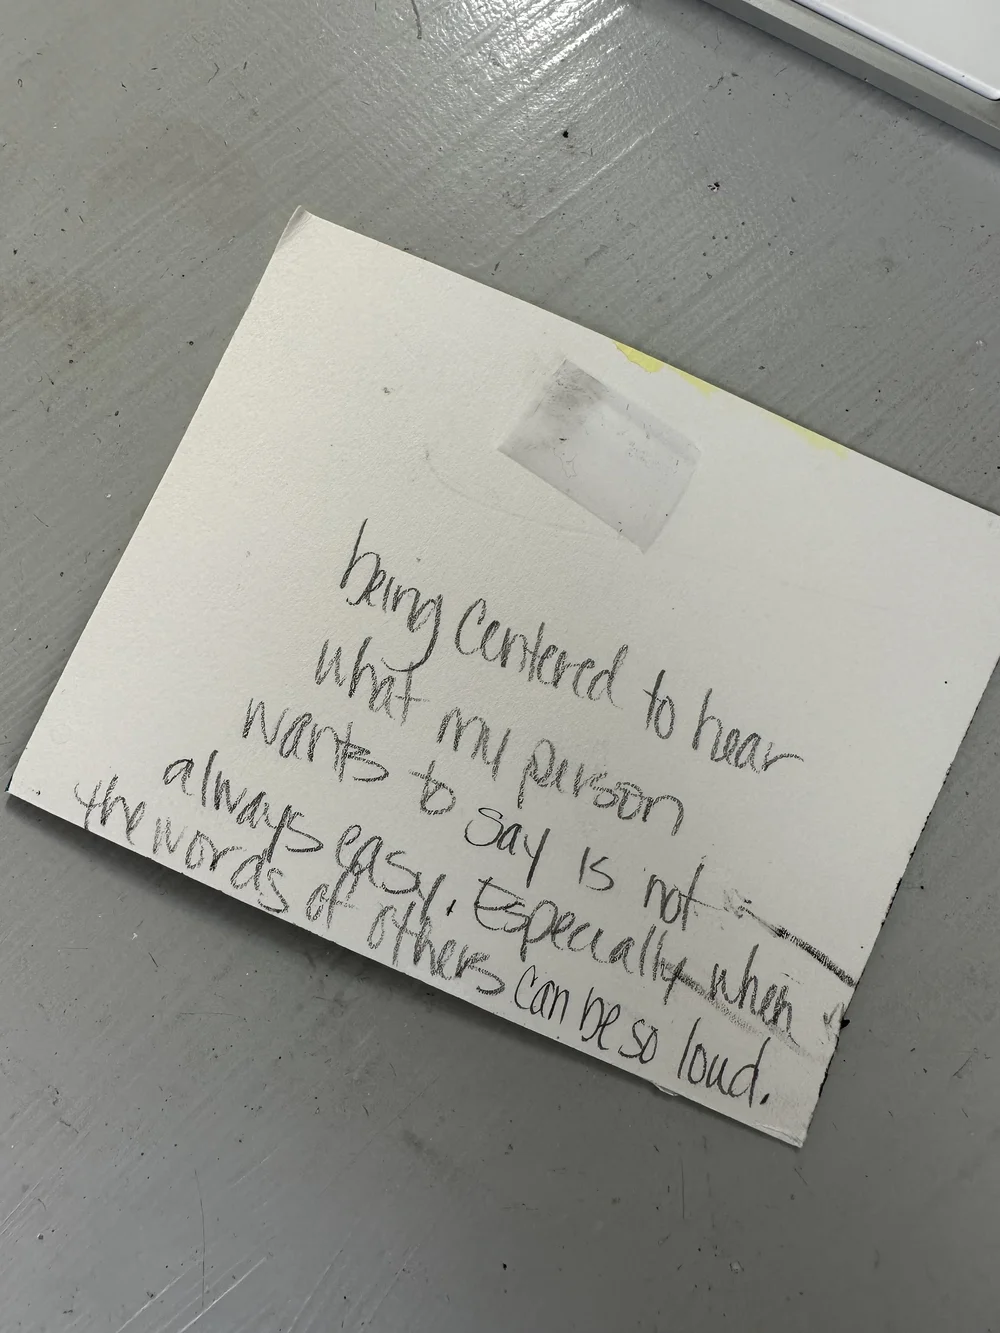 being centered to hear
what my person
wants to say is not
always easy. Especially when
the words of others can be so loud.